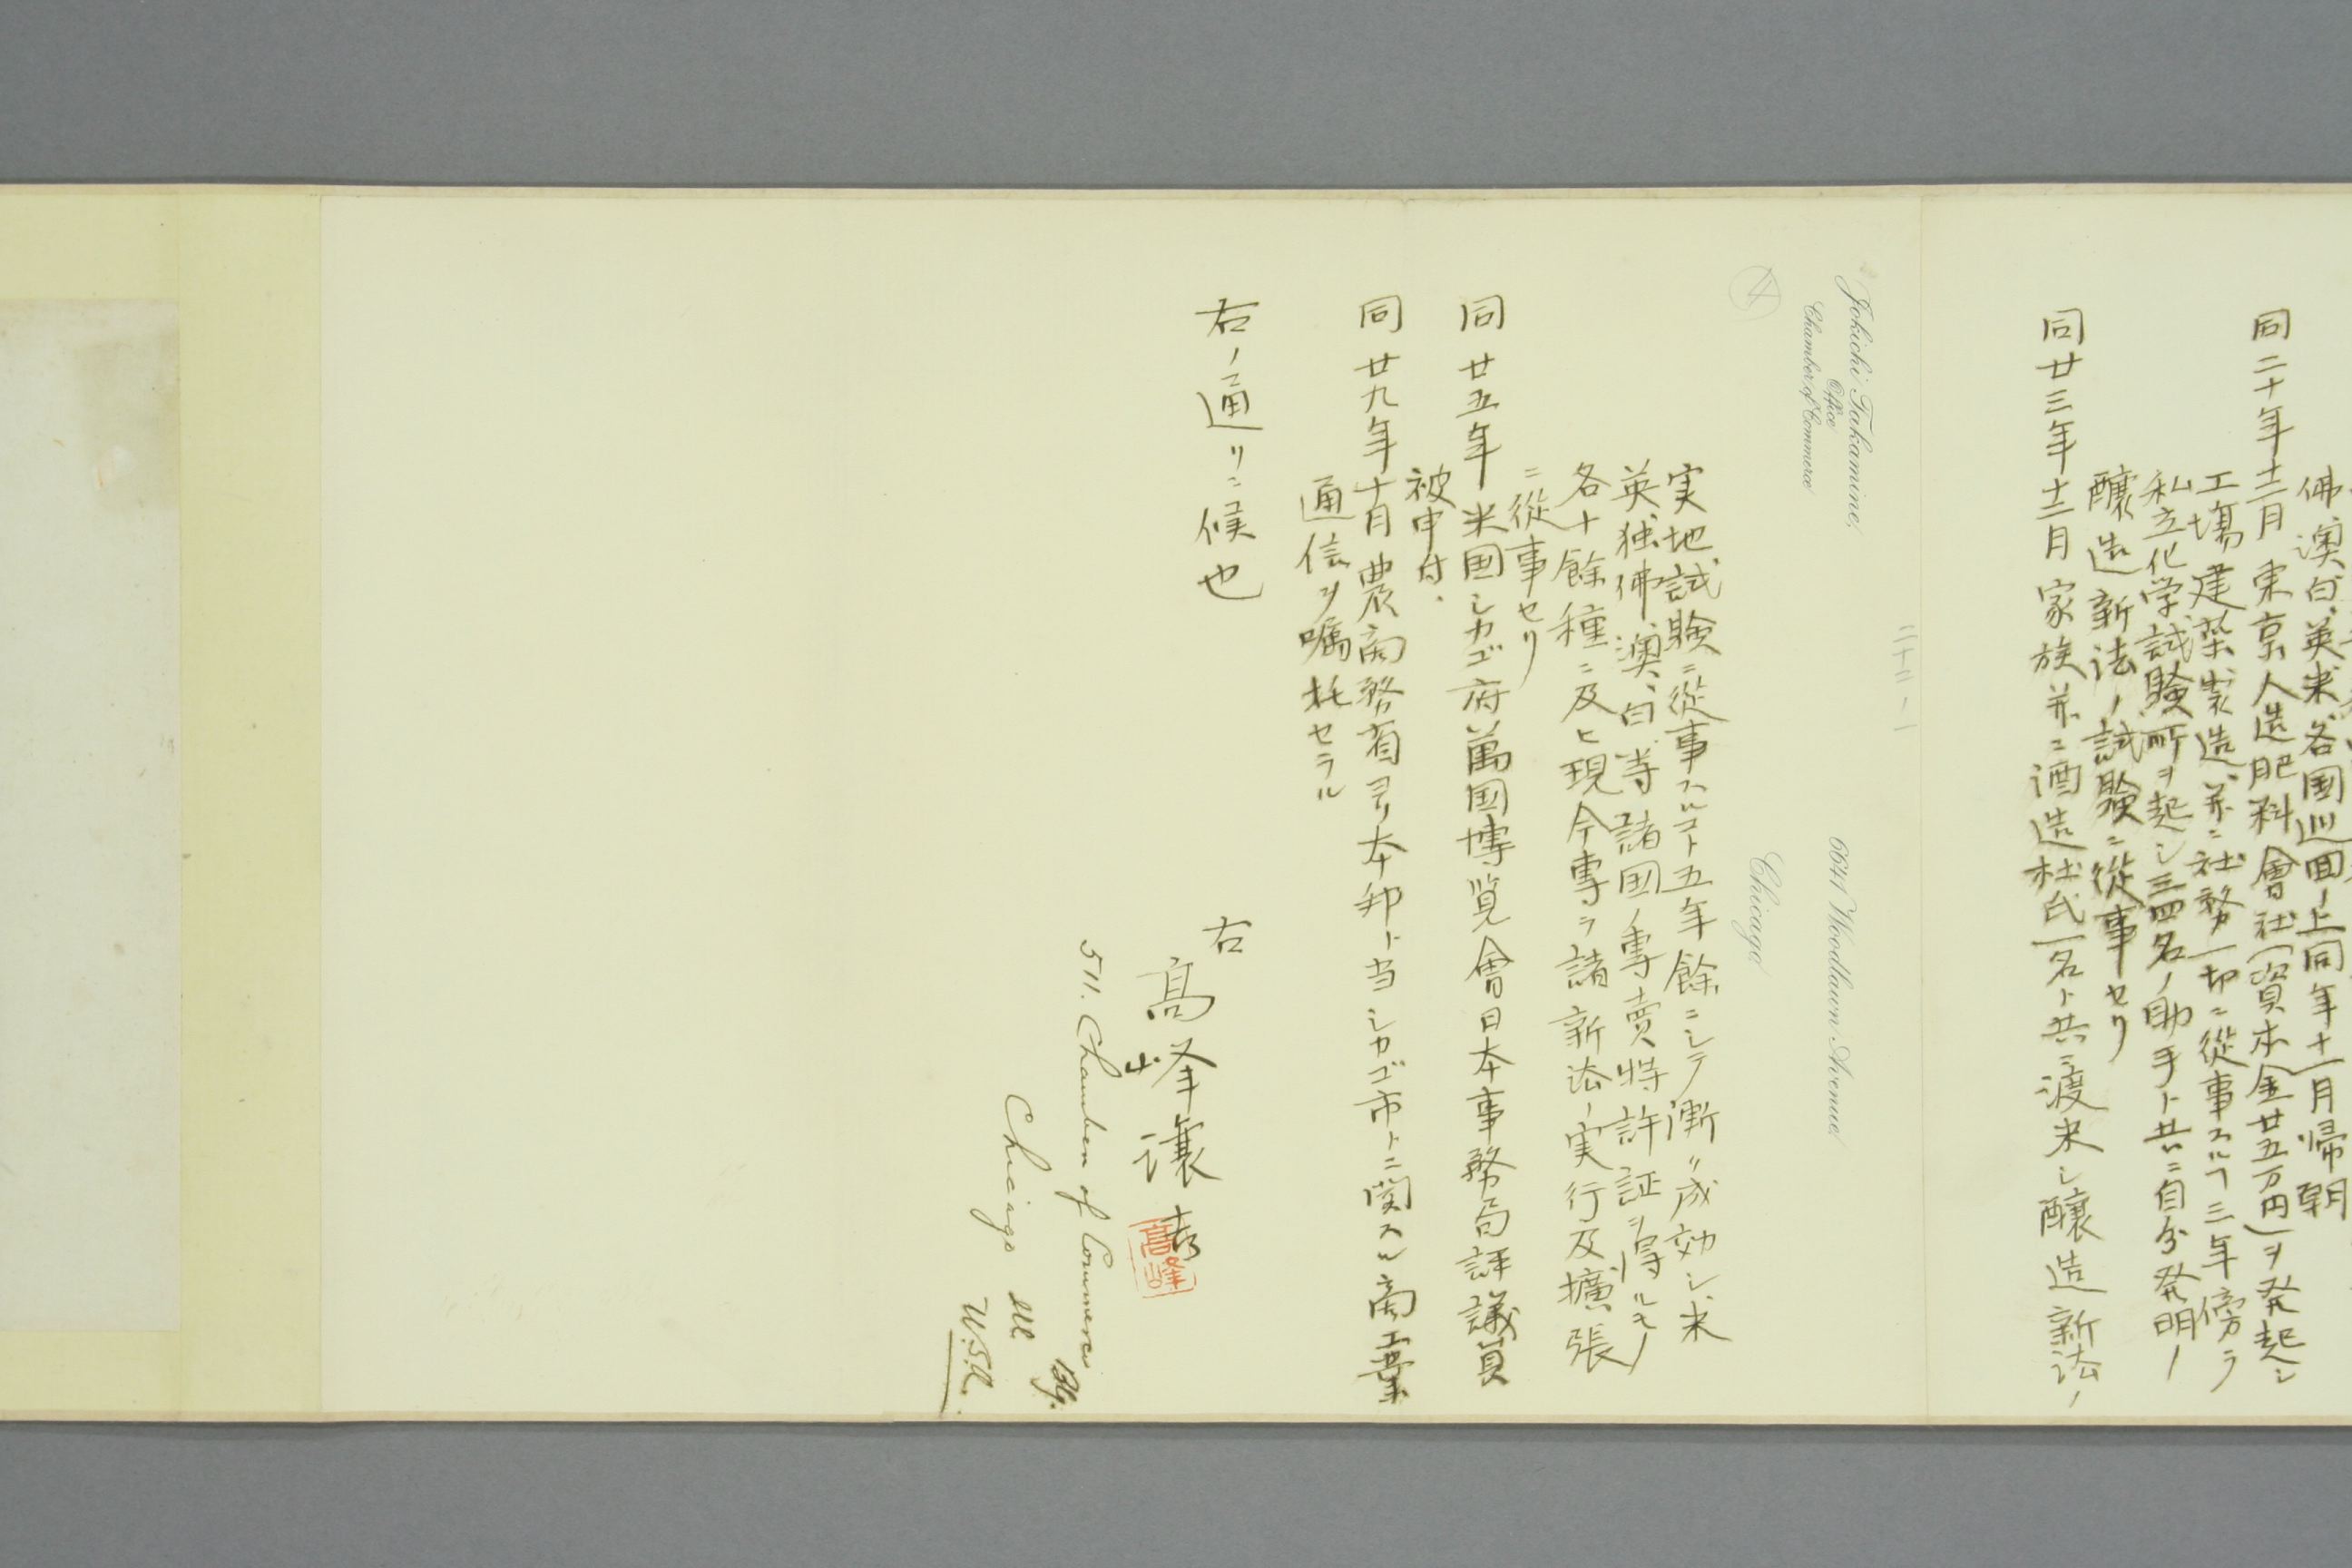 佛、澳、白、英、米、各国巡回ノ上同年十一月帰朝
同二十年十二月東京人造肥料會社(資本金廿五万円)ヲ発起シ
工場建築製造并ニ社務一切ニ從事スルヿ三年傍ラ
私立化学試験所ヲ起シ三四名ノ助手ト共ニ自分発明ノ
醸造新法ノ試験ニ從事セリ
同廿三年十二月家族并ニ酒造杜氏一名ト共ニ渡米シ醸造新法ノ
二十二ノ一
Jokichi Takamine,
Office
Chamber of Commerce
6641 Woodlawn Avenue
Chicago
4
実地試験ニ從事スルコト五年餘ニシテ漸ク成効シ、米
英、独、佛、澳、白、等諸国ノ專賣特許証ヲ得ルモノ
各十餘種ニ及ヒ現今專ラ諸新法ノ実行及擴張
ニ從事セリ
同廿五年米国シカゴ府萬国博覧會日本事務局評議員
被申付、
同廿九年十月農商務省ヨリ本邦ト当シカゴ市トニ関スル商工業
通信ヲ嘱托セラル
右ノ通リニ候也
右
高峰讓吉
高峰
511. Chamber of Commerce Bldg.
Chicago Ill.
U.S.A.